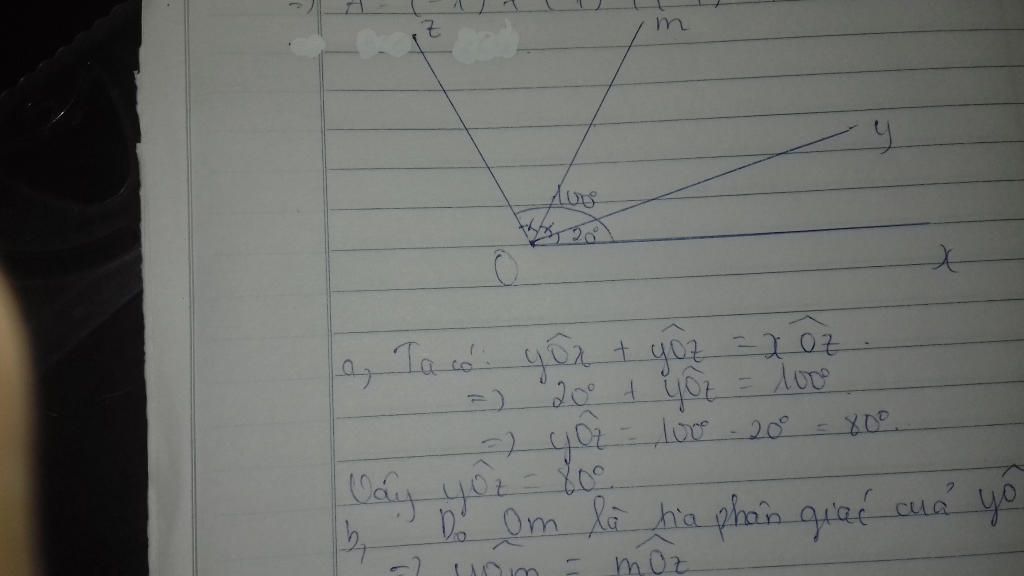 z m
y
100°
20°
O
x
a, Ta có: yÔx + yÔz = xÔz.
=> 20° + yÔz = 100°
=> yÔz = 100° - 20° = 80°.
Vậy yÔz = 80°.
b, Do Om là tia phân giác của yÔ
=> yÔm = mÔz